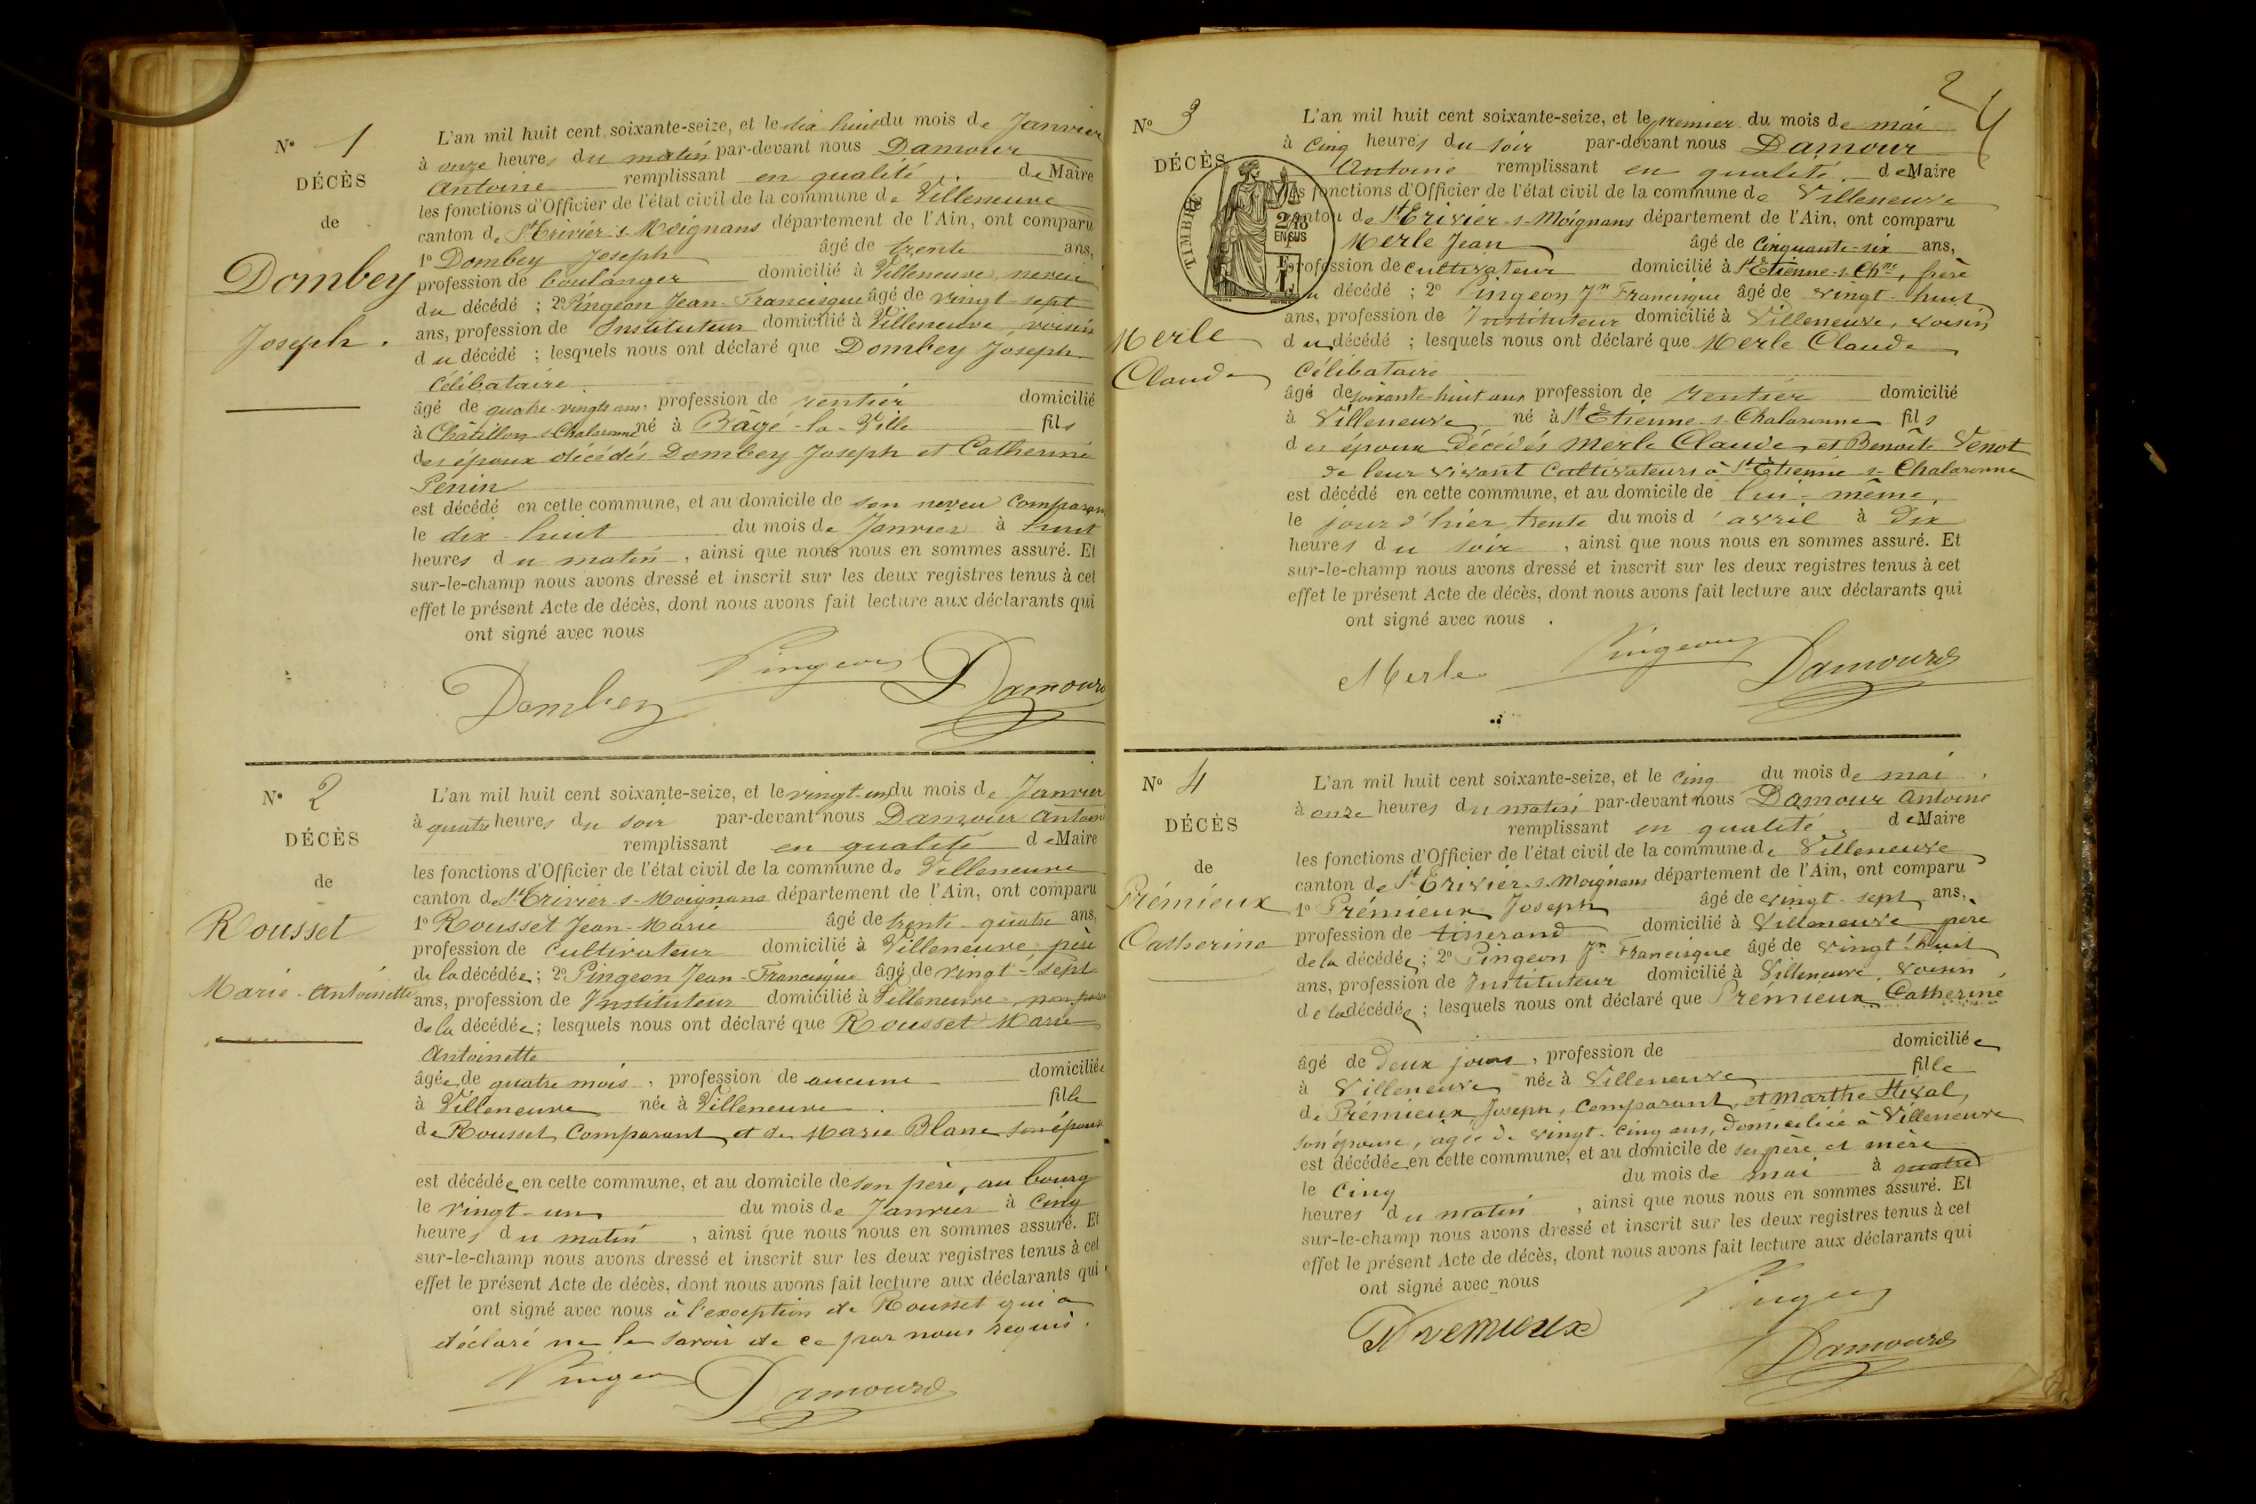 N° 1
DÉCÈS
de
Dombey
Joseph.
L'an mil huit cent soixante-seize, et le dix huit du mois de Janvier
à onze heures du matin par-devant nous Damour
Antoine remplissant en qualité de Maire
les fonctions d'Officier de l'état civil de la commune de Villeneuve
canton de St Trivier-s-Moignans département de l'Ain, ont comparu
1° Dombey Joseph âgé de trente ans,
profession de boulanger domicilié à Villeneuve, neveu
du décédé ; 2° Pingeon Jean-Francisque âgé de vingt-sept
ans, profession de Instituteur domicilié à Villeneuve, voisin
du décédé ; lesquels nous ont déclaré que Dombey Joseph
Célibataire
âgé de quatre-vingts ans, profession de rentier domicilié
à Châtillon-s-Chalaronne né à Bâgé-la-Ville fils
des époux décédés Dombey Joseph et Catherine
Penin
est décédé en cette commune, et au domicile de son neveu comparant
le dix-huit du mois de Janvier à huit
heures du matin, ainsi que nous nous en sommes assuré. Et
sur-le-champ nous avons dressé et inscrit sur les deux registres tenus à cet
effet le présent Acte de décès, dont nous avons fait lecture aux déclarants qui
ont signé avec nous
Dombey Pingeon Damour
N° 2
DÉCÈS
de
Rousset
Marie-Antoinette
L'an mil huit cent soixante-seize, et le vingt-un du mois de Janvier
à quatre heures du soir par-devant nous Damour Antoine
remplissant en qualité de Maire
les fonctions d'Officier de l'état civil de la commune de Villeneuve
canton de St Trivier-s-Moignans département de l'Ain, ont comparu
1° Rousset Jean-Marie âgé de trente-quatre ans,
profession de cultivateur domicilié à Villeneuve père
de la décédée ; 2° Pingeon Jean-Francisque âgé de vingt-sept
ans, profession de Instituteur domicilié à Villeneuve
de la décédée ; lesquels nous ont déclaré que Rousset Marie
Antoinette
âgée de quatre mois, profession de aucune domiciliée
à Villeneuve née à Villeneuve fille
de Rousset, comparant et de Marie Blanc son épouse
est décédée en cette commune, et au domicile de son père, au bourg
le vingt-un du mois de Janvier à cinq
heures du matin, ainsi que nous nous en sommes assuré. Et
sur-le-champ nous avons dressé et inscrit sur les deux registres tenus à cet
effet le présent Acte de décès, dont nous avons fait lecture aux déclarants qui
ont signé avec nous à l'exception de Rousset qui a
déclaré ne le savoir de ce par nous requis.
Pingeon Damour
2
N° 3
DÉCÈS
TIMBRE
2/10
EN SUS
Merle
Claude
L'an mil huit cent soixante-seize, et le premier du mois de mai
à cinq heures du soir par-devant nous Damour
Antoine remplissant en qualité de Maire
les fonctions d'Officier de l'état civil de la commune de Villeneuve
canton de St Trivier-s-Moignans département de l'Ain, ont comparu
Merle Jean âgé de cinquante-six ans,
profession de cultivateur domicilié à St Etienne-s-Chne, frère
du décédé ; 2° Pingeon Jn Francisque âgé de vingt-huit
ans, profession de Instituteur domicilié à Villeneuve, voisin
du décédé ; lesquels nous ont déclaré que Merle Claude
Célibataire
âgé de soixante-huit ans profession de rentier domicilié
à Villeneuve né à St Etienne-s-Chalaronne fils
des époux décédés Merle Claude et Benoîte Venot
de leur vivant cultivateurs à St Etienne-s-Chalaronne
est décédé en cette commune, et au domicile de lui-même,
le jour d'hier trente du mois d'avril à dix
heures du soir, ainsi que nous nous en sommes assuré. Et
sur-le-champ nous avons dressé et inscrit sur les deux registres tenus à cet
effet le présent Acte de décès, dont nous avons fait lecture aux déclarants qui
ont signé avec nous.
Merle Pingeon Damour
N° 4
DÉCÈS
de
Prémieux
Catherine
L'an mil huit cent soixante-seize, et le cinq du mois de mai
à onze heures du matin par-devant nous Damour Antoine
remplissant en qualité de Maire
les fonctions d'Officier de l'état civil de la commune de Villeneuve
canton de St Trivier-s-Moignans département de l'Ain, ont comparu
1° Prémieux Joseph âgé de vingt-sept ans,
profession de tisserand domicilié à Villeneuve père
de la décédée ; 2° Pingeon Jn Francisque âgé de vingt-huit
ans, profession de Instituteur domicilié à Villeneuve, voisin
de la décédée ; lesquels nous ont déclaré que Prémieux Catherine
âgé de deux jours, profession de domiciliée
à Villeneuve née à Villeneuve fille
de Prémieux Joseph, comparant, et Marthe
son épouse, âgée de vingt-cinq ans, domiciliée à Villeneuve
est décédée en cette commune, et au domicile de ses père et mère
le cinq du mois de mai à quatre
heures du matin, ainsi que nous nous en sommes assuré. Et
sur-le-champ nous avons dressé et inscrit sur les deux registres tenus à cet
effet le présent Acte de décès, dont nous avons fait lecture aux déclarants qui
ont signé avec nous
Premieux Pingeon Damour